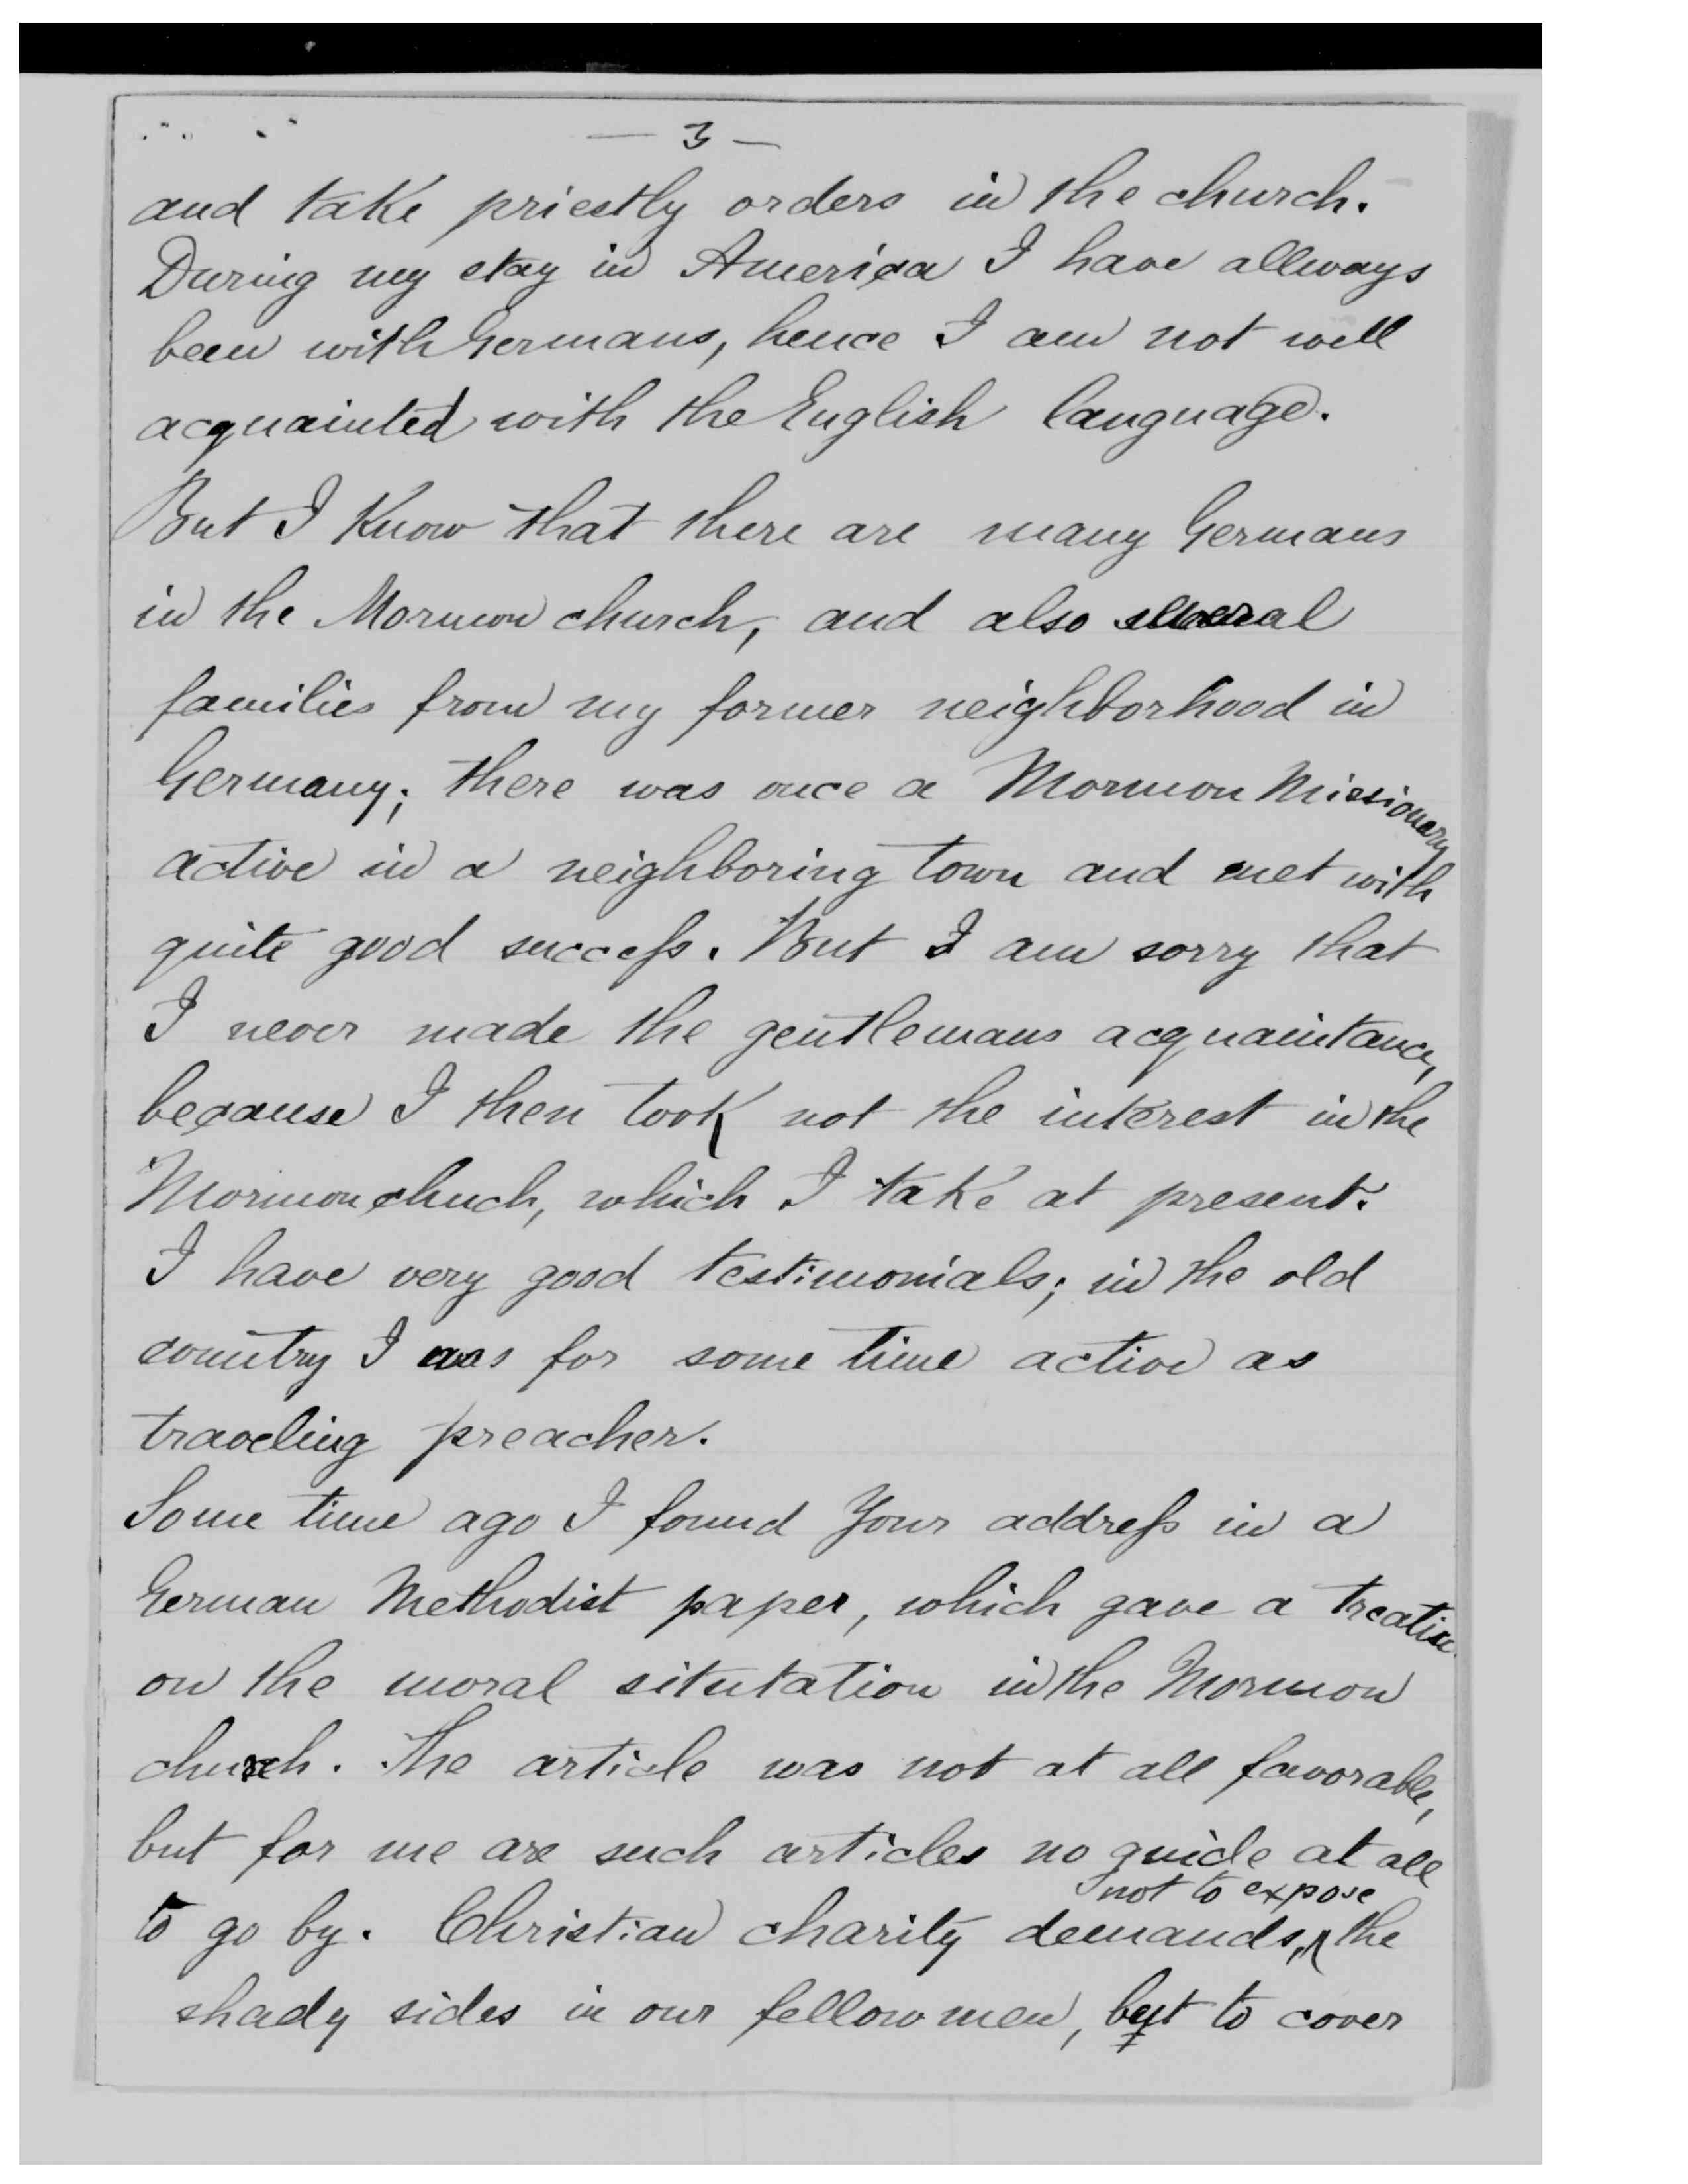 — 3 —
and take priestly orders in the church.
During my stay in America I have allways
been with Germans, hence I am not well
acquainted with the English language.
But I know that there are many Germans
in the Mormon church, and also several
families from my former neighborhood in
Germany; there was once a Mormon Missionary
active in a neighboring town and met with
quite good success. But I am sorry that
I never made the gentlemans acquaintance,
because I then took not the interest in the
Mormon chuch, which I take at present.
I have very good testimonials; in the old
country I was for some time active as
traveling preacher.
Some time ago I found Your address in a
German Methodist paper, which gave a treatise
on the moral situtation in the Mormon
church. The article was not at all favorable,
but for me are such articles no guide at all
not to expose
to go by. Christian charity demands, the
shady sides in our fellow men, but to cover